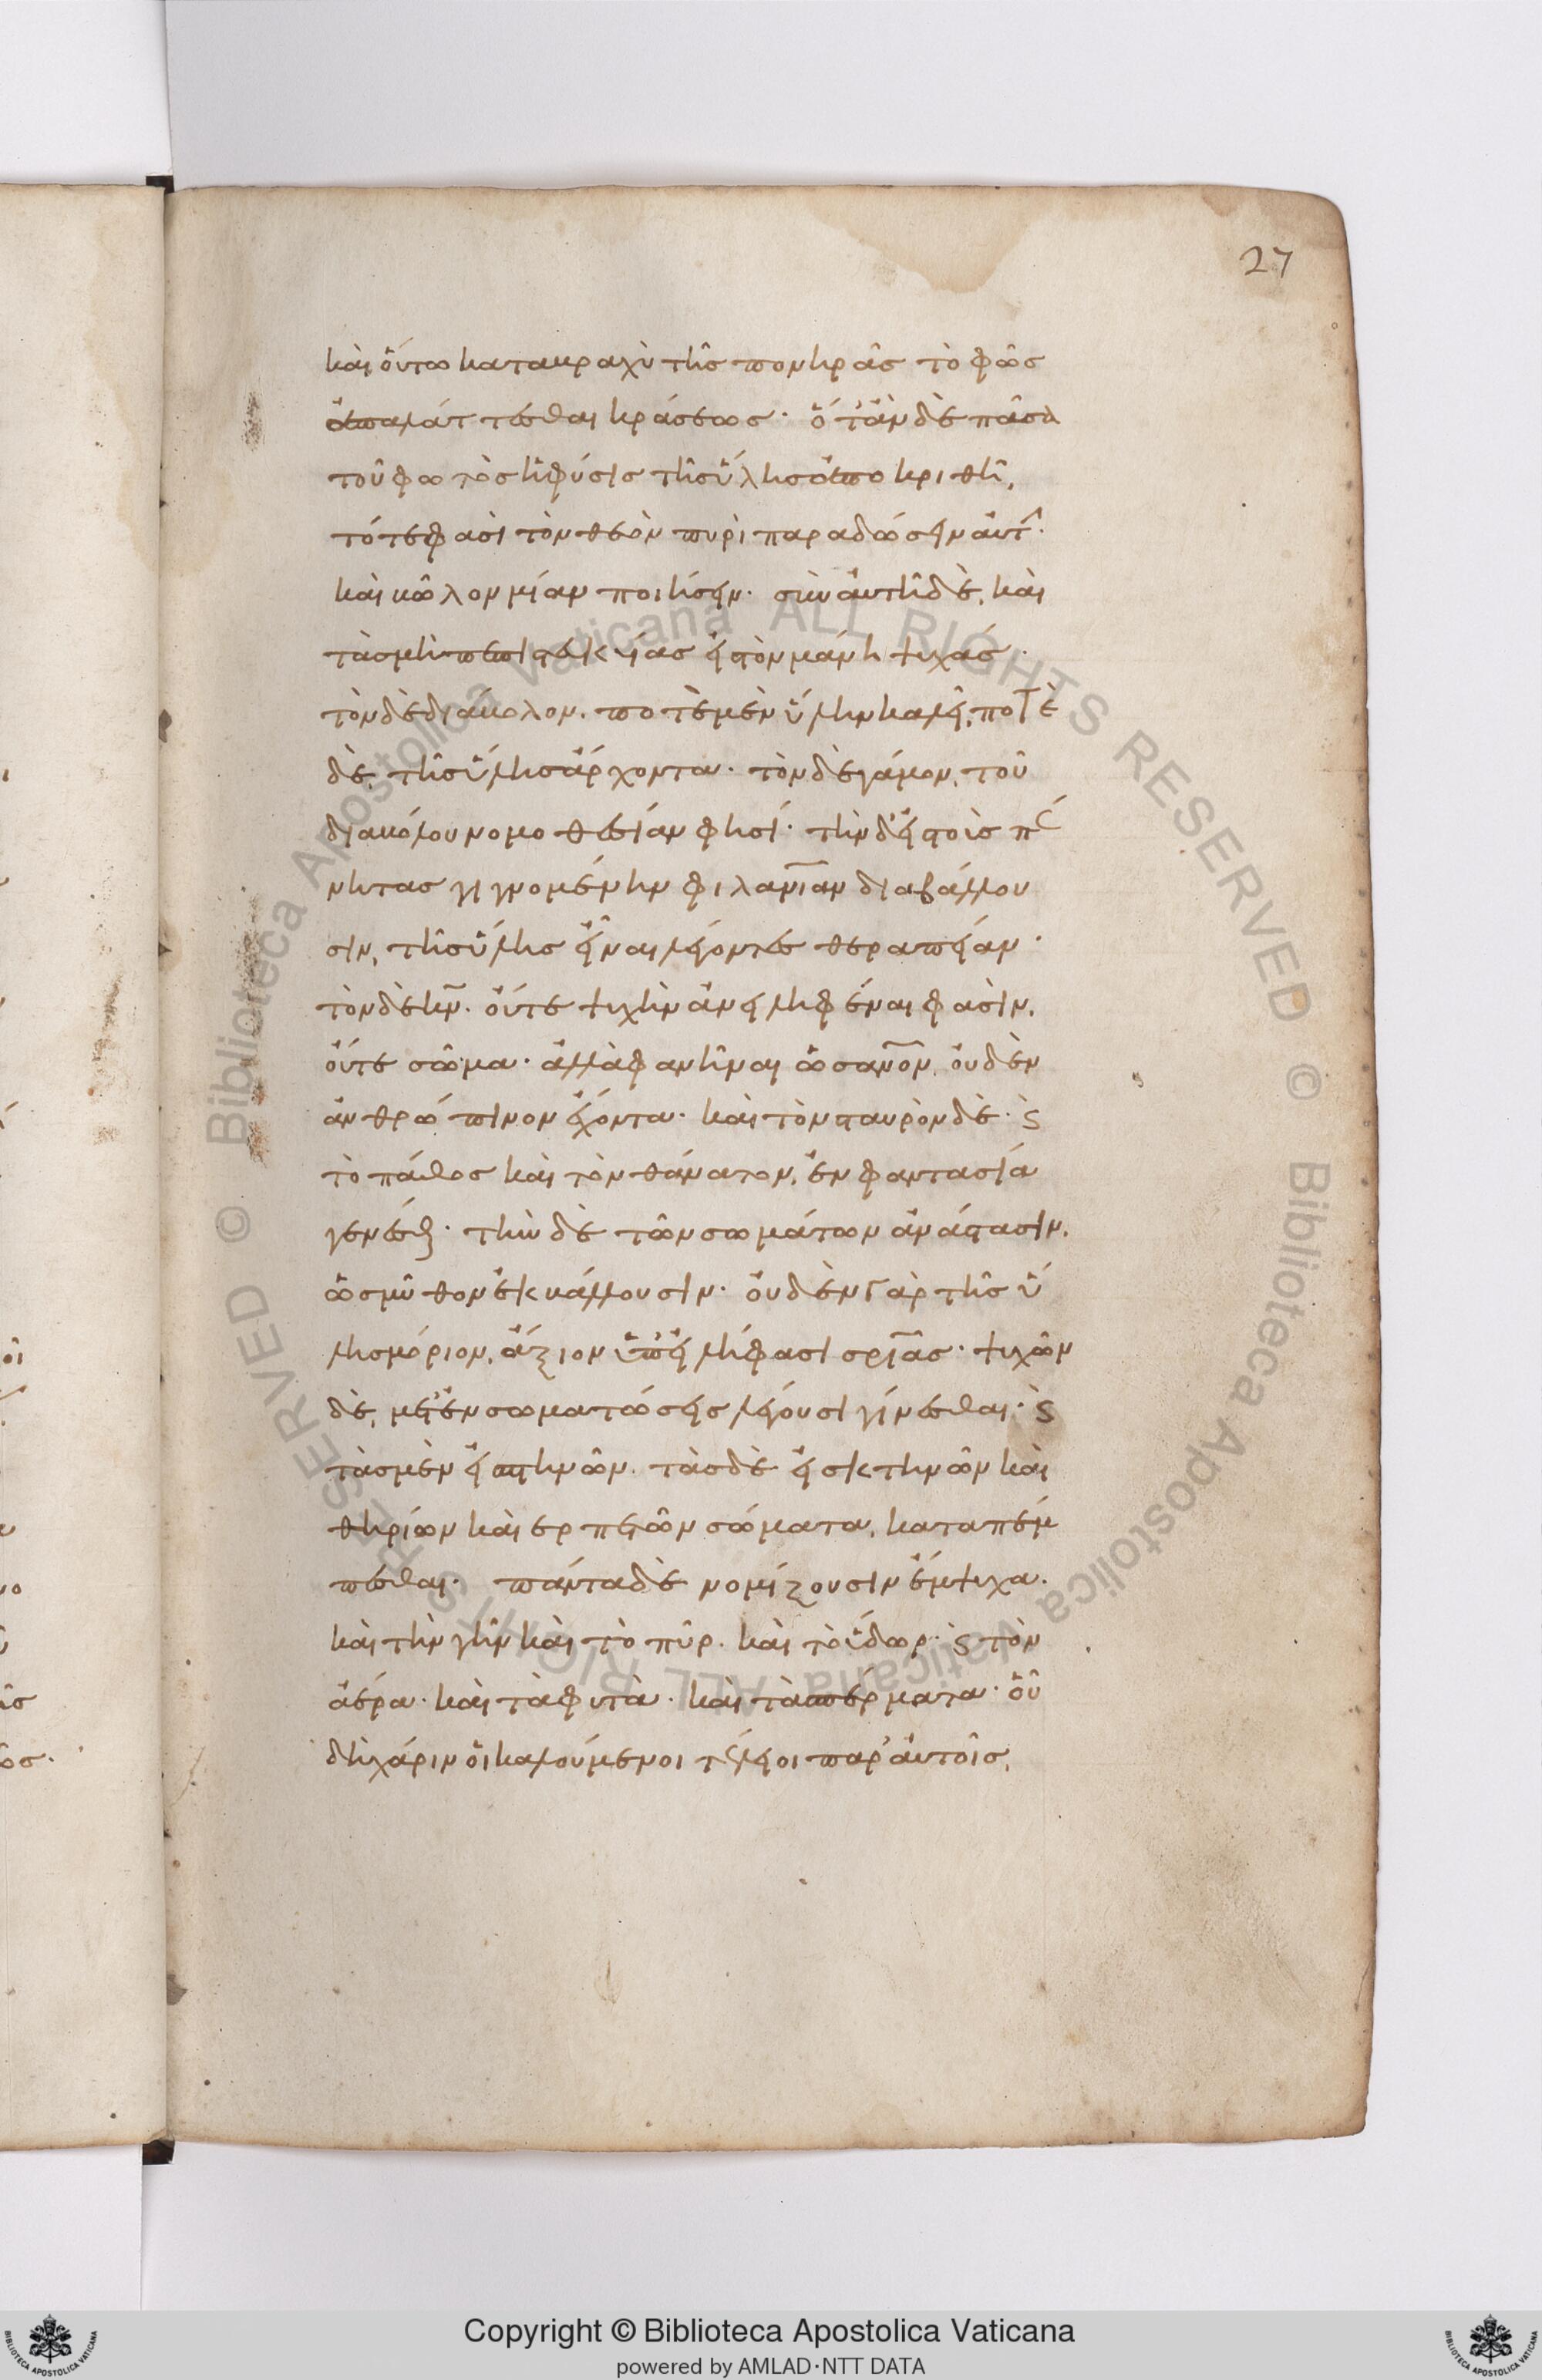 27
καὶ οὕτω καταβραχὺ τῆς πονηρᾶς τὸ φῶς
ἀπαλάττεσθαι κράσεως· ὅτἂν δὲ πᾶσα
τοῦ φωτὸς ἡ φύσις τῆς ὕλης ἀποκριθῆ,
τότε φασὶ τὸν θεὸν πυρὶ παραδώσειν αὐτ̑·
καὶ βῶλον μίαν ποιήσειν· σὺν αὐτῆ δὲ, καὶ
τὰς μὴ πεπιστευκυίας εἰς τὸν μάνη ψυχάς·
τὸν δὲ διάβολον. ποτὲ μὲν ὕλην καλεῖ, ποτὲ
δὲ, τῆς ὕλης ἄρχοντα· τὸν δὲ γάμον, τοῦ
διαβόλου νομοθεσίαν φησί· τὴν δ' εἰς τοὺς πέ
νητας γιγνομένην φιλανιαν διαβάλλου
σιν, τῆς ὕλης εἶναι λέγοντες θεραπείαν·
τὸν δὲ κν. οὔτε ψυχὴν ἀνειληφέναι φασὶν,
οὔτε σῶμα· ἀλλὰ φανῆναι ὡς ανον, οὐδὲν
ἀνθρώπινον ἔχοντα· καὶ τὸν σταυρὸν δὲ· ϛ
τὸ πάθος καὶ τὸν θάνατον, ἐν φαντασία
γενέσθ· τὴν δὲ τῶν σωμάτων ἀνάστασιν,
ὡς μῦθον ἐκβάλλουσιν· οὐδὲν γὰρ τῆς ὕ
λης μόριον, ἄξιον ὑπείληφασι σριας· ψυχῶν
δὲ, μετενσωματώσεις λέγουσι γίνεσθαι· ϛ
τὰς μὲν εἰς πτηνῶν. τὰς δὲ εἰς κτηνῶν καὶ
θηρίων καὶ ερπετῶν σώματα, καταπέμ
πεσθαι· πάντα δὲ νομίζουσιν ἔμψυχα·
καὶ τὴν γῆν καὶ τὸ πῦρ. καὶ τὸ ὕδωρ· ϛ τὸν
ἀέρα· καὶ τὰ φυτὰ· καὶ τὰ σπέρματα· οὗ
δὴ χάριν οἱ καλούμενοι τέλειοι παρ' αὐτοῖς,
Copyright © Biblioteca Apostolica Vaticana
powered by AMLAD·NTT DATA